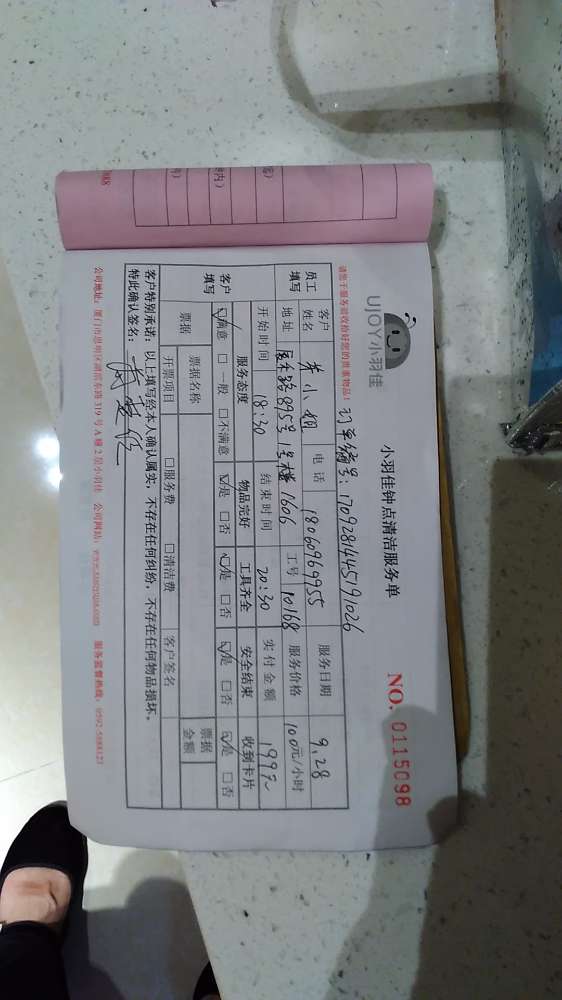 UJOY小羽佳
小羽佳钟点清洁服务单
NO. 0115098
请您于服务验收给好您的贵事物品!
订单编号: 170928144579026
员工填写
客户姓名 小姐 电话 18060969955 服务日期 9.28
地址 路895号1号楼1606 工号 10168 服务价格 100元/小时
开始时间 18:30 结束时间 20:30 实付金额 199元
客户填写
服务态度 物品完好 工具齐全 安全结束 收到卡片
☑满意 □一般 □不满意 ☑是 □否 ☑是 □否 ☑是 □否 ☑是 □否
票据 票据名称 票据金额
开票项目 □服务费 □清洁费 客户签名
客户特别承诺: 以上填写经本人确认属实, 不存在任何纠纷, 不存在任何物品损坏。
特此确认签名:
公司地址: 厦门市思明区湖滨东路319号A幢2层小羽佳 公司网站: www.xmujoin.com 服务监督热线: 0592-5888123